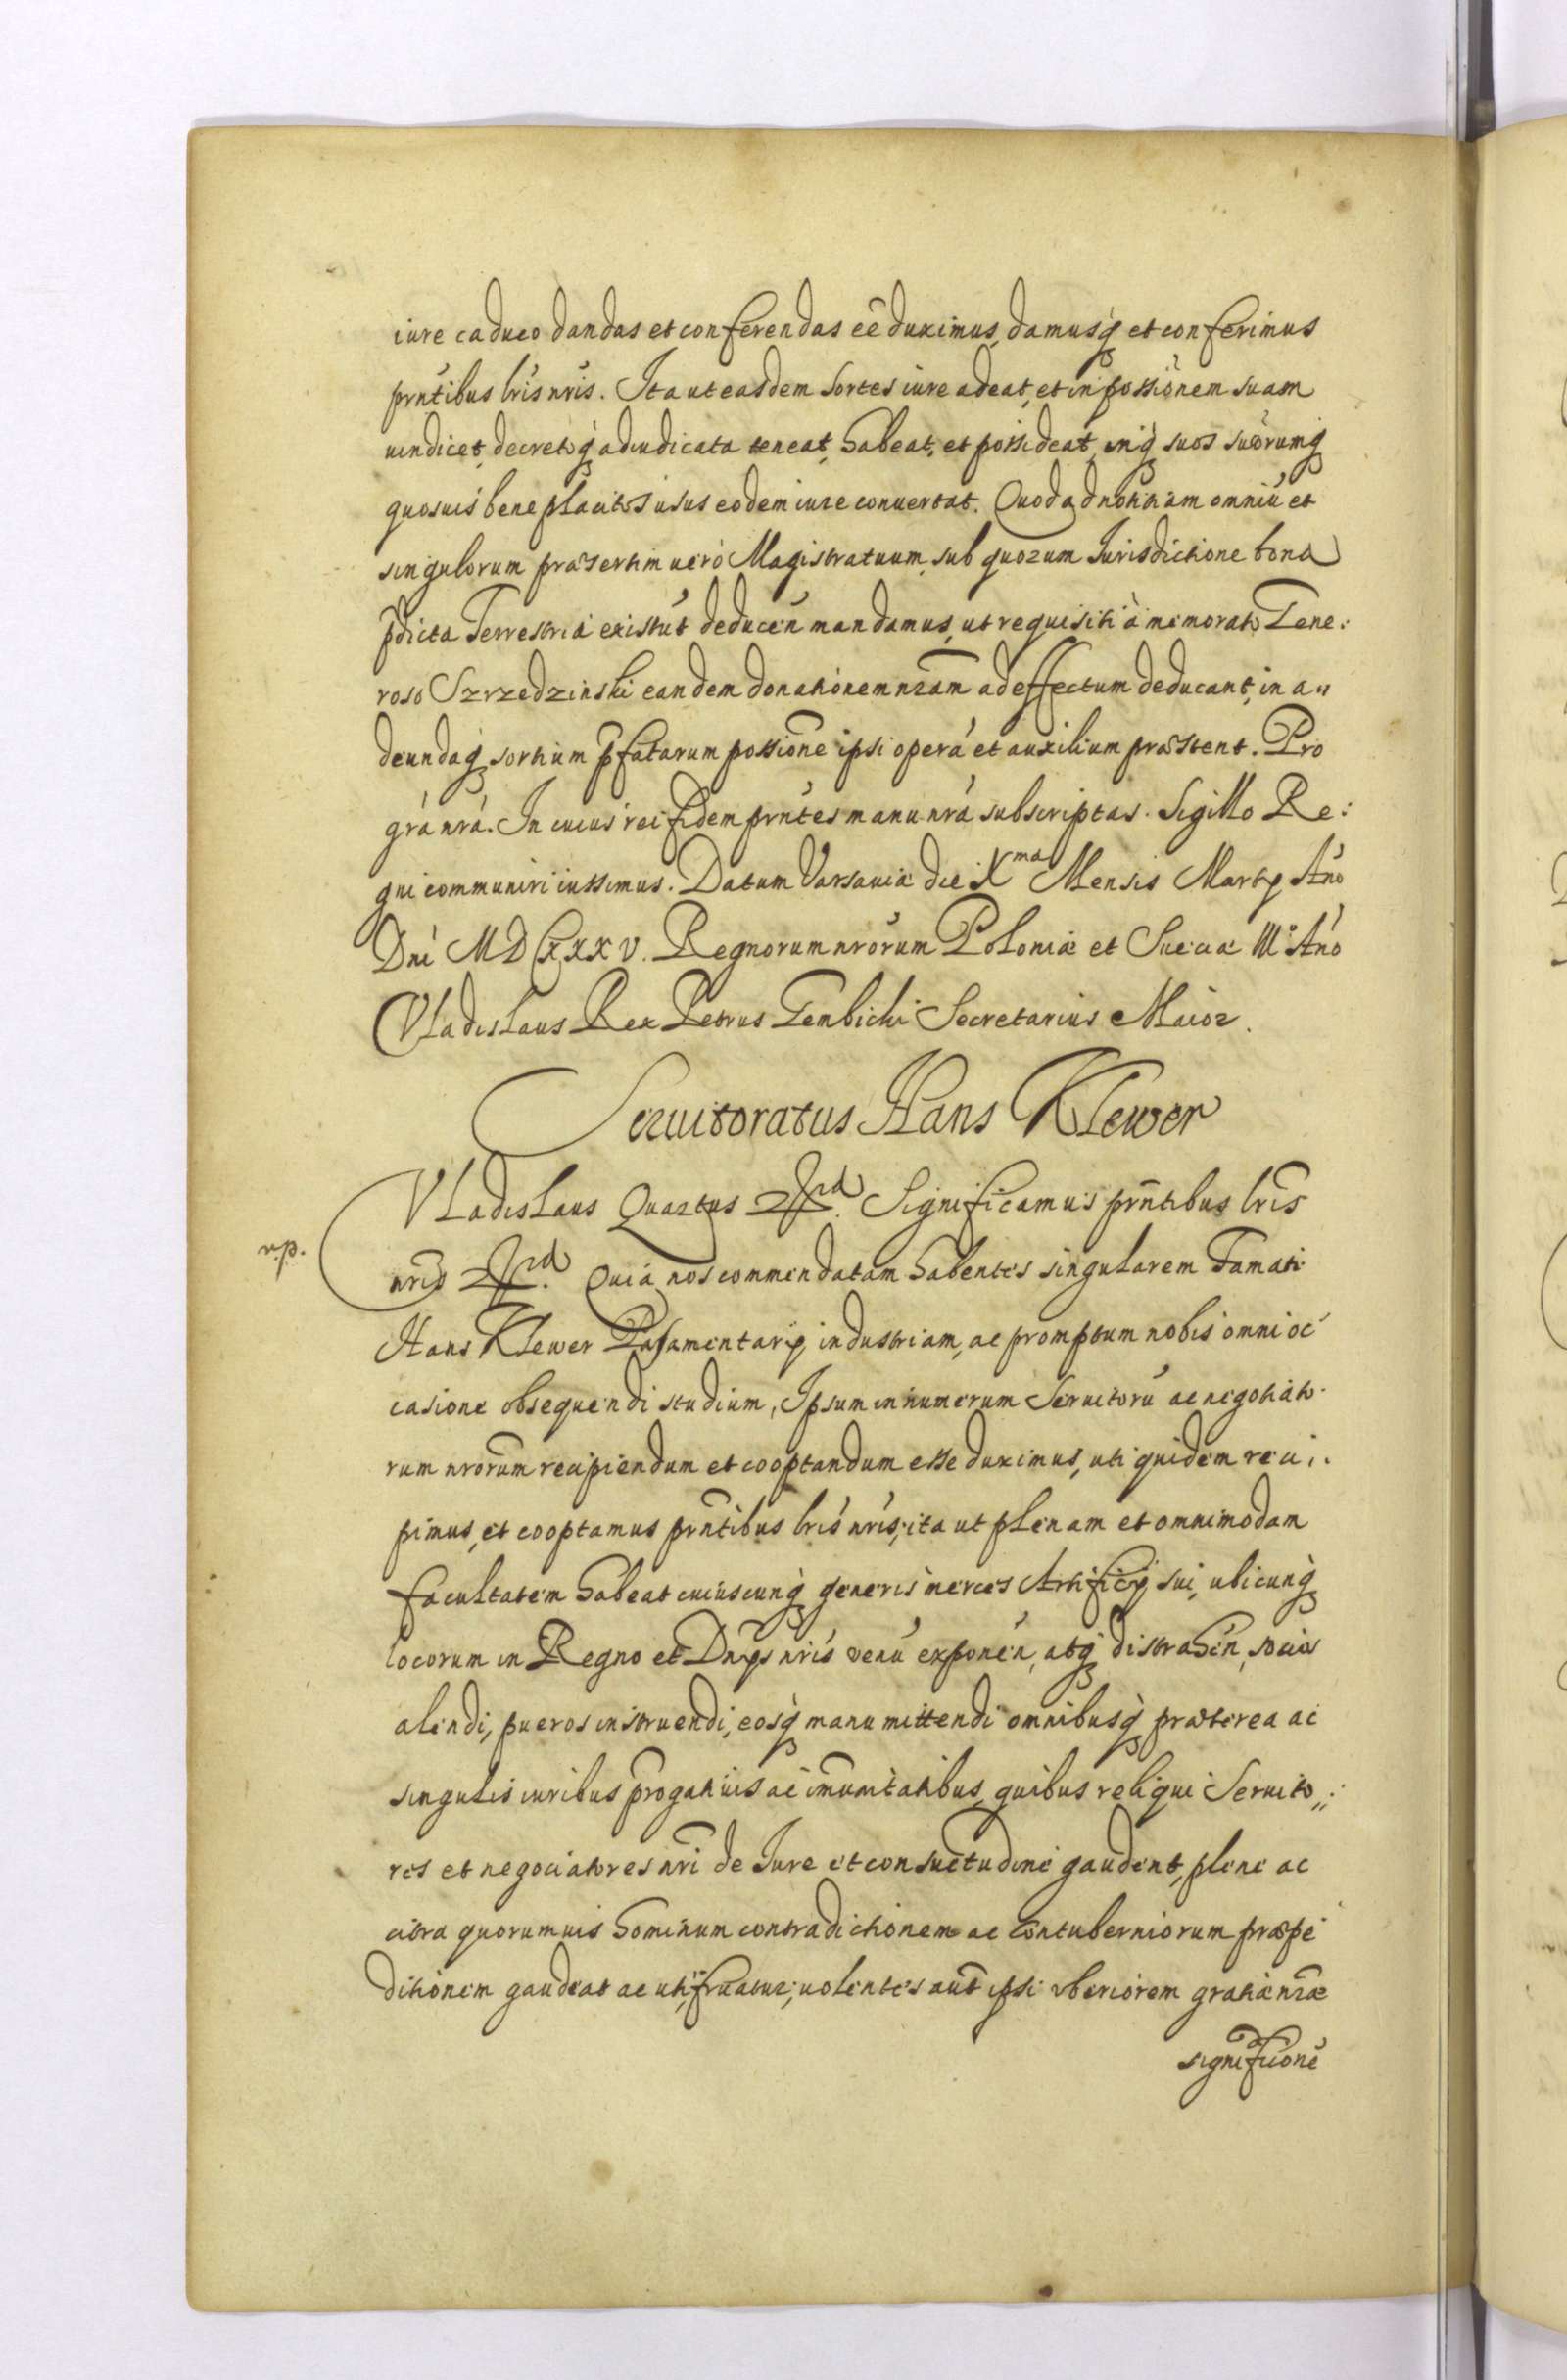 iure caduco dandas et conferendas eē duximus, damusq́ et conferimus
prn̄tibus lris nris. Ita ut easdem sortes iure adeat, et in possionem suam
uindicet, decretoq́ adiudicata teneat, habeat, et possideat, inq́ suos suorumq́
quosuis beneplacitos usus eodem iure conuertat. Quod ad notitiam omniū et
singulorum præsertim uerò Magistratuum, sub quorum Iurisdictione bona
p̄dicta Terrestria existūt deducen̄ mandamus, ut requisiti à memorato Gene:
roso Szrzedzinski eandem donationem nr̄am ad effectum deducant, in a„
deundaq́ sortium p̄fatarum possione ipsi operā et auxilium præstent. Pro
grā nrā. In cuius rei fidem prn̄tes manu nrā subscriptas. Sigillo Re:
gni communiri iussimus. Datum Varsauiæ die Xma Mensis Martij Ano
Dni MDCXXXV. Regnorum nrorum Poloniæ et Sueciæ III° Ano
Vladislaus Rex Petrus Gembicki Secretarius Maior.
Seruitoratus Hans Klewer
Vladislaus Quartus &. Significamus prn̄tibus lris
r.p.
nris &. Quia nos commendatam habentes singularem Famati
Hans Klewer Pasamentarij industriam, ac promptum nobis omni oc
casione obsequendi studium, Ipsum in numerum Seruitorū ac negotiato
rum nrorum recipiendum et cooptandum esse duximus, uti quidem reci:
pimus, et cooptamus prn̄tibus lris nris, ita ut plenam et omnimodam
facultatem habeat cuiuscunq́ generis merces Artificij sui, ubicunq́
locorum in Regno et Dnijs nris venū exponen̄, atq́ distrahen̄, socios
alendi, pueros instruendi, eosq́ manu mittendi omnibusq́ præterea ac
singulis iuribus prōgatiuis ac imunitatibus, quibus reliqui Seruito„:
res et negociatores nri de Iure et consuetudine gaudent, plene ac
citra quorumuis hominum contradictionem ac contuberniorum præpe
ditionem gaudeat ac uti, fruatur, uolentes aūt ipsi vberiorem gratiæ nræ
signifi̅cione